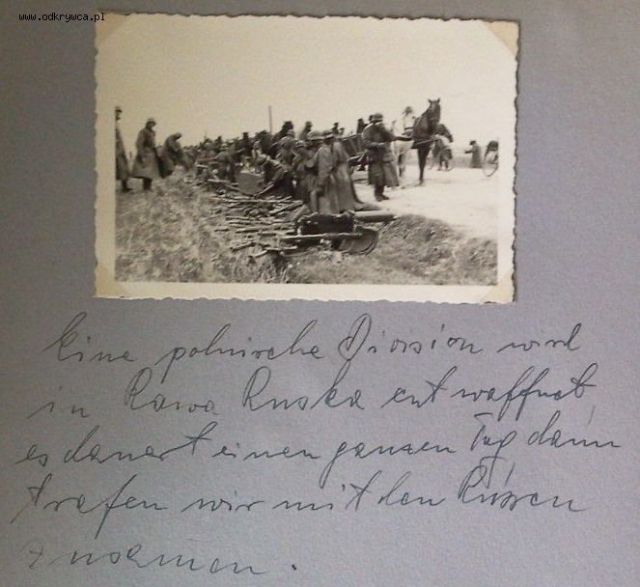 www.odkrywca.pl
Eine polnische Division wird
in Rawa Ruska entwaffnet,
es dauert einen ganzen Tag dann
trafen wir mit den Russen
zusammen.